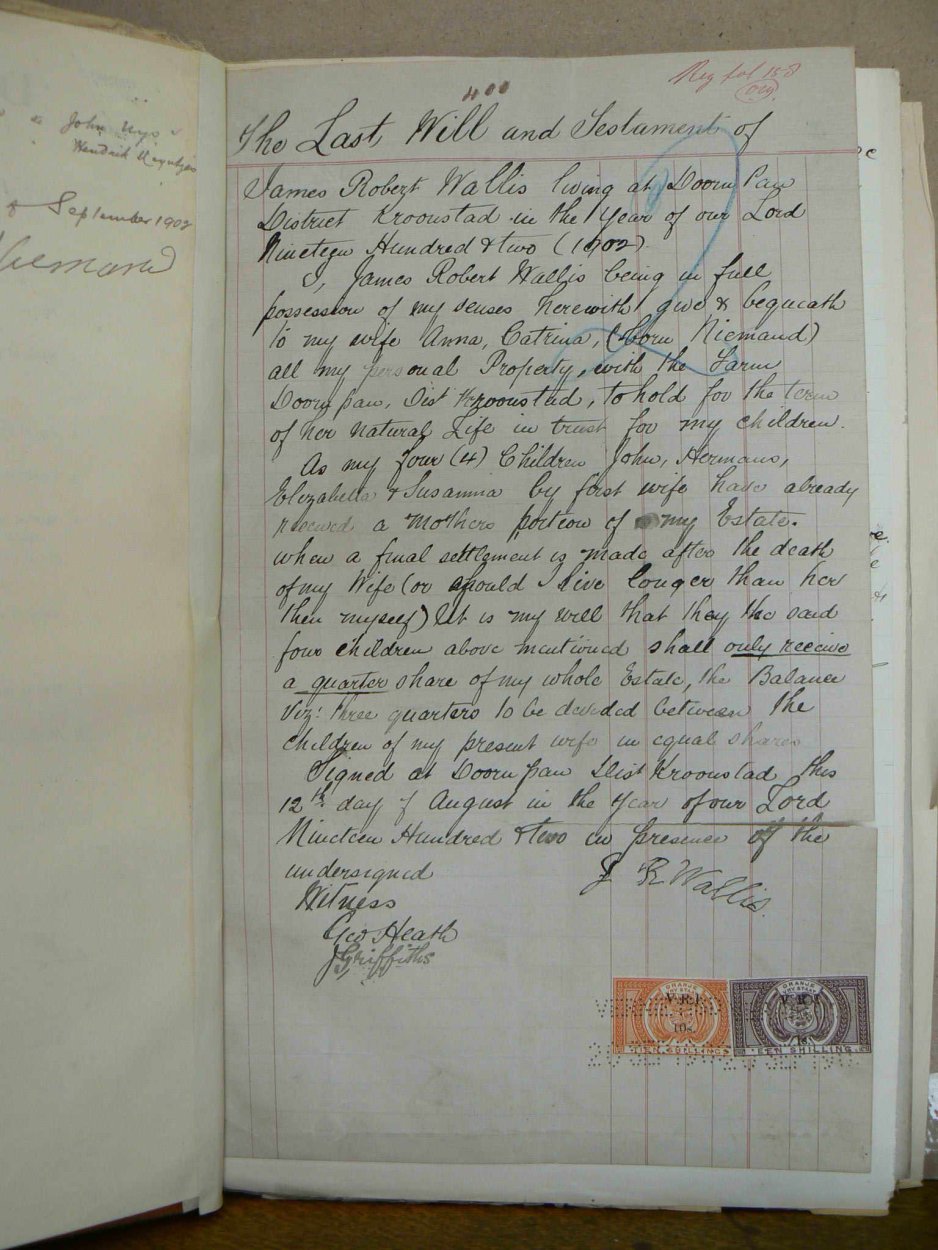 John Uys
Hendrik
September 1902
Niemand
400
Reg fol 158
The Last Will and Testament of
James Robert Wallis living at Doorn Pan
District Kroonstad in the Year of our Lord
Nineteen Hundred & two (1902).
I, James Robert Wallis being in full
possession of my senses herewith give & bequeath
to my wife Anna, Catrina, (born Niemand)
all my personal Property, with the Farm
Doorn pan, Dist Kroonstad, to hold for the term
of her natural Life in trust for my children.
As my four (4) Children John, Hermans,
Elizabella & Susanna by first wife have already
received a mothers portion of my Estate.
when a final settlement is made after the death
of my Wife (or should I live longer than her
then myself) It is my will that they the said
four children above mentioned shall only receive
a quarter share of my whole Estate, the Balance
Viz: three quarters to be divided between the
children of my present wife in equal shares
Signed at Doorn pan Dist Kroonstad this
12th day of August in the Year of our Lord
Nineteen Hundred & two in presence of the
undersigned
J R Wallis.
Witness
Geo Heath
J Griffiths
ORANJE
VRY STAAT
V.R.I.
10s
TIEN SHILLINGS
ORANJE
VRY STAAT
V.R.I.
1s
EEN SHILLING